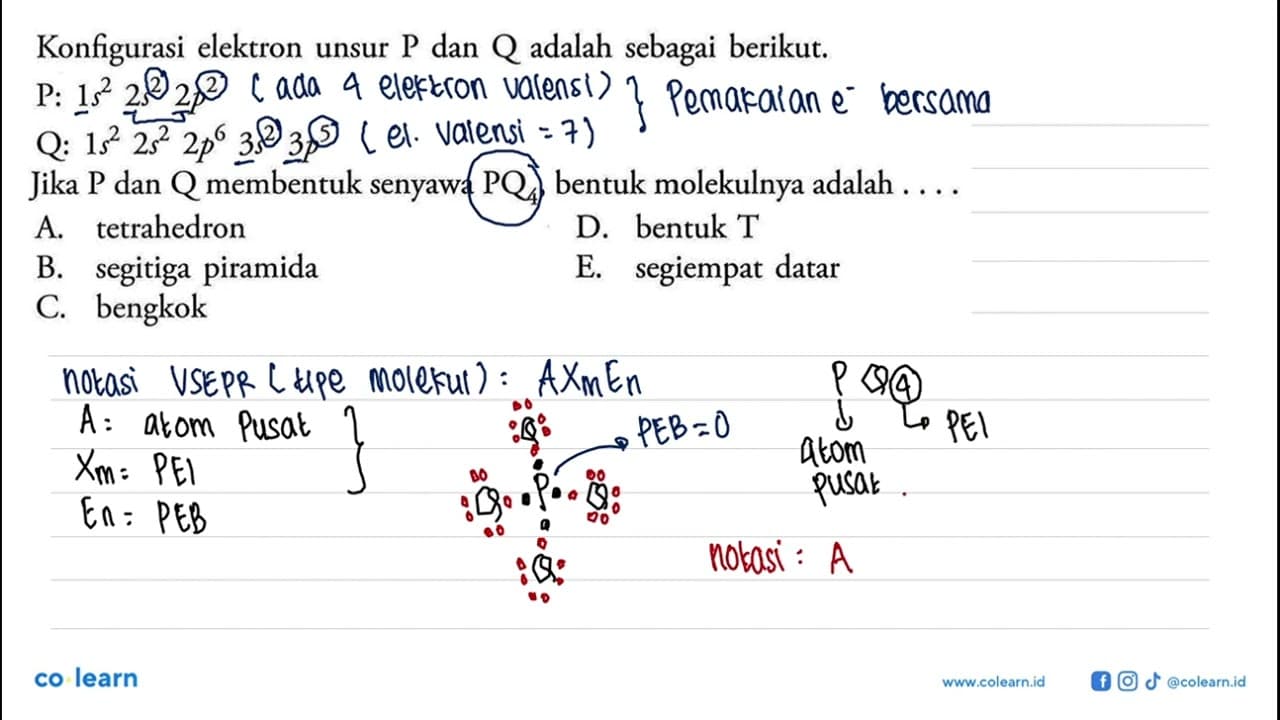 Konfigurasi elektron unsur P dan Q adalah sebagai berikut.
P: 1s² 2s² 2p² (ada 4 elektron valensi)
Q: 1s² 2s² 2p⁶ 3s² 3p⁵ (el. valensi = 7)
} Pemakaian e⁻ bersama
Jika P dan Q membentuk senyawa PQ₄, bentuk molekulnya adalah . . . .
A. tetrahedron
B. segitiga piramida
C. bengkok
D. bentuk T
E. segiempat datar
notasi VSEPR (tipe molekul) : AXmEn
A : atom Pusat
Xm = PEI
En = PEB
Q
Q P Q
Q
PEB = 0
P Q 4
atom pusat
PEI
notasi : A
co learn
www.colearn.id
@colearn.id